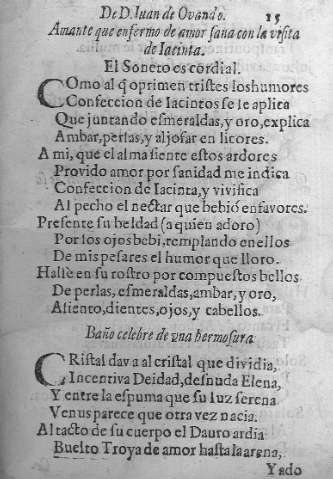 De D. Iuan de Ovando. 15
Amante que enfermo de amor sana con la visita
de Iacinta.
El Soneto es cordial.
Como al q oprimen tristes los humores
Confeccion de Iacintos se le aplica
Que juntando esmeraldas, y oro, explica
Ambar, perlas, y aljofar en licores.
A mi, que el alma siente estos ardores
Provido amor por sanidad me indica
Confeccion de Iacinta, y vivifica
Al pecho el nectar que bebiò en favores.
Presente su beldad (a quien adoro)
Por los ojos bebi, templando en ellos
De mis pesares el humor que lloro.
Hallè en su rostro por compuestos bellos
De perlas, esmeraldas, ambar, y oro,
Aliento, dientes, ojos, y cabellos.
Baño celebre de vna hermosura
Cristal dava al cristal que dividia,
Incentiva Deidad, desnuda Elena,
Y entre la espuma que su luz serena
Venus parece que otra vez nacia.
Al tacto de su cuerpo el Dauro ardia
Buelto Troya de amor hasta la arena,
Y ado